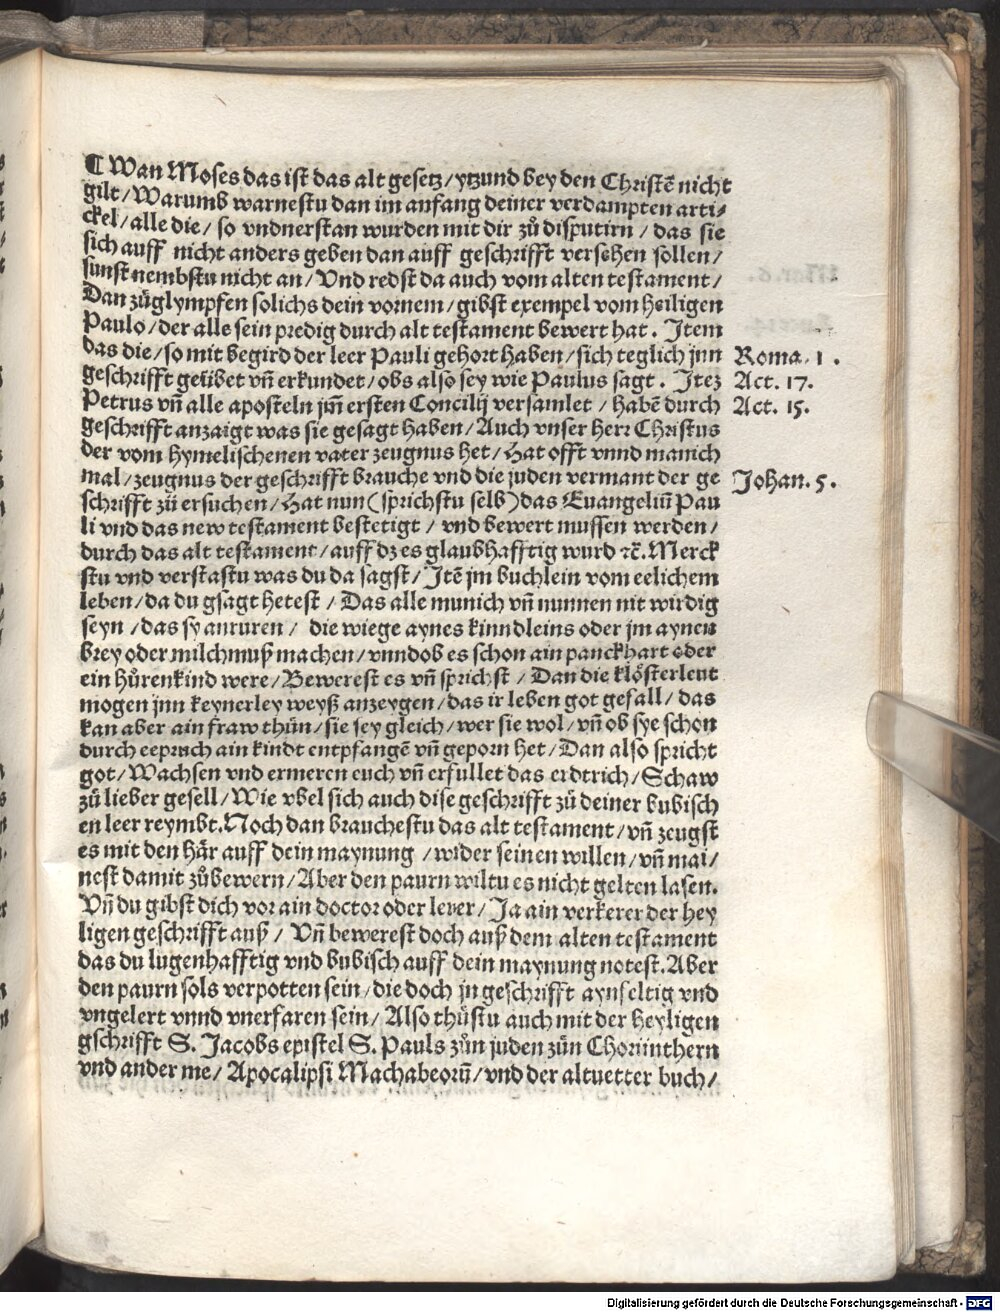 ¶ Wan Moses das ist das alt gesetz / ytzund bey den Christē nicht
gilt / Warumb warnestu dan im anfang deiner verdampten arti⸗
ckel / alle die / so vndnerstan wurden mit dir zů disputirn / das sie
sich auff nicht anders geben dan auff geschrifft versehen sollen /
sunst nembstu nicht an / Vnd redst da auch vom alten testament /
Dan zůglympfen solichs dein vornem / gibst exempel vom heiligen
Paulo / der alle sein predig durch alt testament bewert hat . Item
das die / so mit begird der leer Pauli gehort haben / sich teglich jnn
Roma. 1 .
geschrifft geübet vñ erkundet / obs also sey wie Paulus sagt . Itez
Act. 17.
Petrus vñ alle aposteln jm̄ ersten Concilij versamlet / habē durch
Act. 15.
geschrifft anzaigt was sie gesagt haben / Auch vnser herr Christus
der vom hymelischenen vater zeugnus het / Hat offt vnnd manich
mal / zeugnus der geschrifft brauche vnd die juden vermant der ge
Johan. 5 .
schrifft zü ersuchen / Hat nun ( sprichstu selb ) das Euangeliū Pau
li vnd das new testament bestetigt / vnd bewert mussen werden /
durch das alt testament / auff dz es glaubhafftig wurd ꝛc̄. Merck
stu vnd verstastu was du da sagst / Itē jm buchlein vom eelichem
leben / da du gsagt hetest / Das alle munich vñ nunnen nit wirdig
seyn / das sy anruren / die wiege aynes kinndleins oder jm aynen
brey oder milchmuß machen / vnndob es schon ain panckhart oder
ein hůrenkind were / Bewerest es vñ sprichst / Dan die klösterleut
mogen jnn keynerley weyß anzeygen / das ir leben got gefall / das
kan aber ain fraw thün / sie sey gleich / wer sie wol / vñ ob sye schon
durch eepruch ain kindt entpfangē vñ geporn het / Dan also spricht
got / Wachsen vnd ermeren euch vñ erfullet das erdtrich / Schaw
zů lieber gesell / Wie vbel sich auch dise geschrifft zů deiner bubisch
en leer reymbt. Noch dan brauchestu das alt testament / vñ zeugst
es mit den här auff dein maynung / wider seinen willen / vñ mai /
nest damit zůbewern / Aber den paurn wiltu es nicht gelten lasen.
Vñ du gibst dich vor ain doctor oder lerer / Ja ain verkerer der hey
ligen geschrifft auß / Vñ bewerest doch auß dem alten testament
das du lugenhafftig vnd bubisch auff dein maynung notest. Aber
den paurn sols verpotten sein / die doch jn geschrifft aynfeltig vnd
vngelert vnnd vnerfaren sein / Also thůstu auch mit der heyligen
gschrifft S. Jacobs epistel S. Pauls zůn juden zün Choriinthern
vnd ander me / Apocalipsi Machabeorū / vnd der altuetter buch /
Digitalisierung gefördert durch die Deutsche Forschungsgemeinschaft - DFG